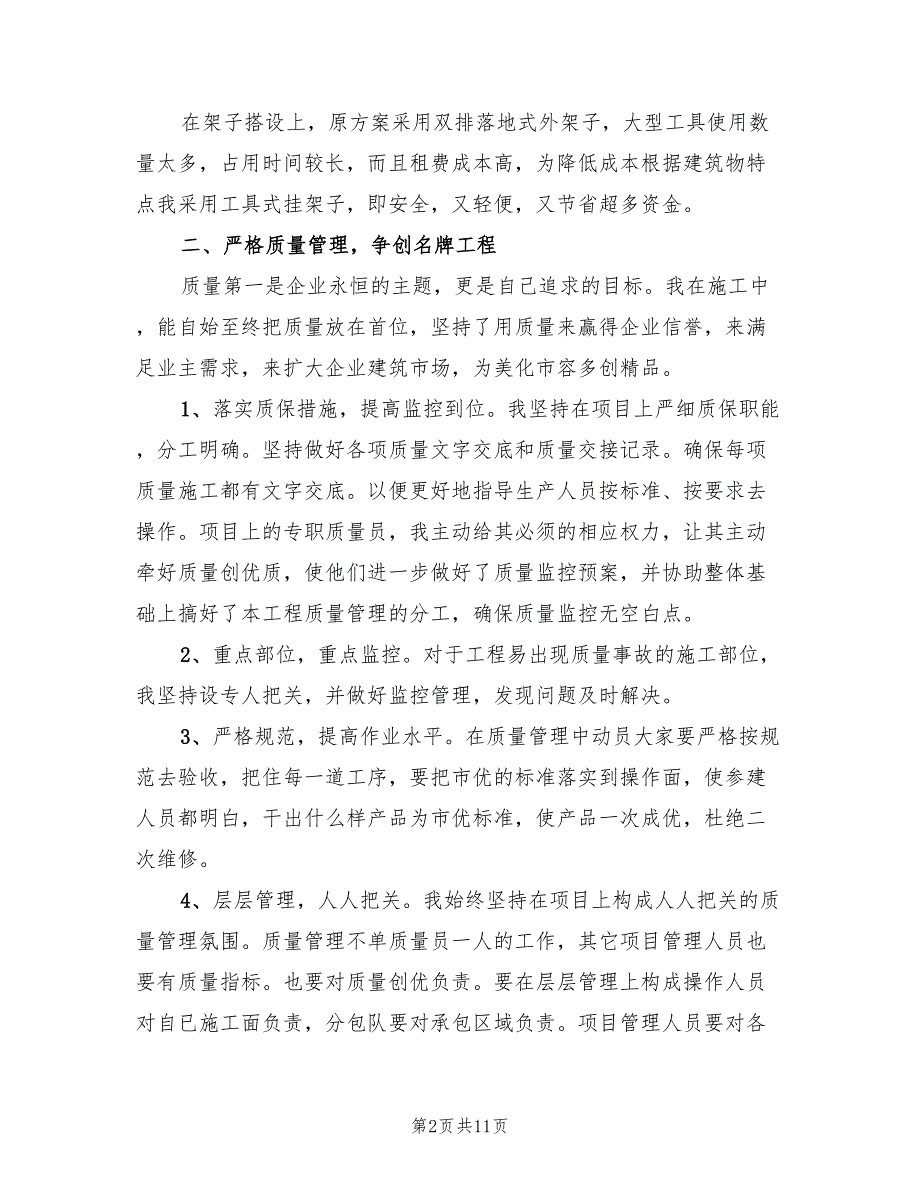 在架子搭设上，原方案采用双排落地式外架子，大型工具使用数
量太多，占用时间较长，而且租费成本高，为降低成本根据建筑物特
点我采用工具式挂架子，即安全，又轻便，又节省超多资金。
二、严格质量管理，争创名牌工程
质量第一是企业永恒的主题，更是自己追求的目标。我在施工中
，能自始至终把质量放在首位，坚持了用质量来赢得企业信誉，来满
足业主需求，来扩大企业建筑市场，为美化市容多创精品。
1、落实质保措施，提高监控到位。我坚持在项目上严细质保职能
，分工明确。坚持做好各项质量文字交底和质量交接记录。确保每项
质量施工都有文字交底。以便更好地指导生产人员按标准、按要求去
操作。项目上的专职质量员，我主动给其必须的相应权力，让其主动
牵好质量创优质，使他们进一步做好了质量监控预案，并协助整体基
础上搞好了本工程质量管理的分工，确保质量监控无空白点。
2、重点部位，重点监控。对于工程易出现质量事故的施工部位，
我坚持设专人把关，并做好监控管理，发现问题及时解决。
3、严格规范，提高作业水平。在质量管理中动员大家要严格按规
范去验收，把住每一道工序，要把市优的标准落实到操作面，使参建
人员都明白，干出什么样产品为市优标准，使产品一次成优，杜绝二
次维修。
4、层层管理，人人把关。我始终坚持在项目上构成人人把关的质
量管理氛围。质量管理不单质量员一人的工作，其它项目管理人员也
要有质量指标。也要对质量创优负责。要在层层管理上构成操作人员
对自已施工面负责，分包队要对承包区域负责。项目管理人员要对各
第2页共11页